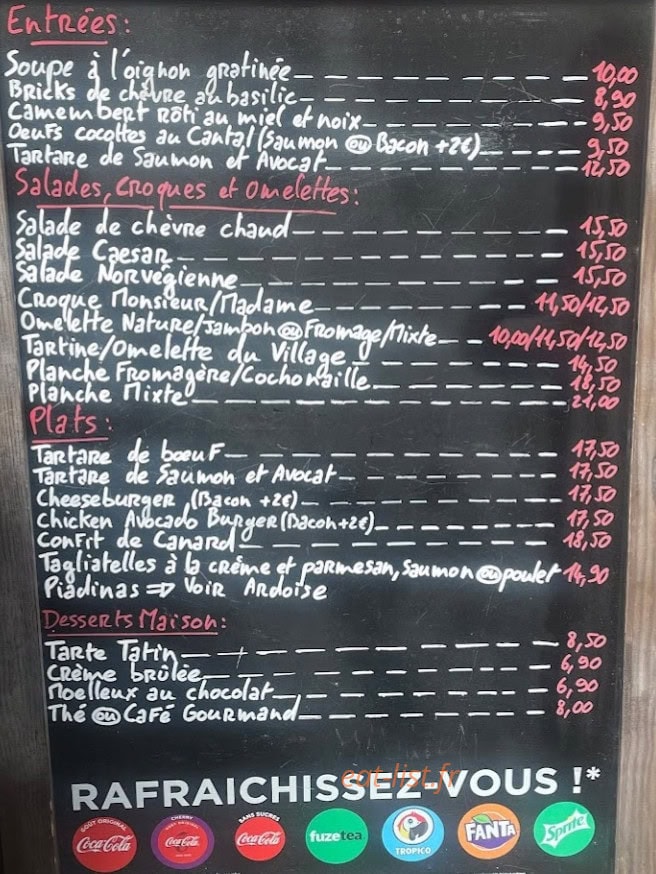 Entrées:
Soupe à l'oignon gratinée 10,00
Bricks de chèvre au basilic 8,90
Camembert Rôti au miel et noix 9,50
Oeufs cocottes au Cantal (Saumon ou Bacon +2€) 9,50
Tartare de Saumon et Avocat 12,50
Salades, Croques et Omelettes:
Salade de chèvre chaud 15,50
Salade Caesar 15,50
Salade Norvégienne 15,50
Croque Monsieur/Madame 11,50/12,50
Omelette Nature/Jambon ou Fromage/Mixte 10,00/11,50/12,50
Tartine/Omelette du Village 14,50
Planche Fromagère/Cochonaille 18,50
Planche Mixte 21,00
Plats:
Tartare de boeuf 17,50
Tartare de Saumon et Avocat 17,50
Cheeseburger (Bacon +2€) 17,50
Chicken Avocado Burger (Bacon+2€) 17,50
Confit de Canard 18,50
Tagliatelles à la crème et parmesan, saumon ou poulet 14,90
Piadinas => Voir Ardoise
Desserts Maison:
Tarte Tatin 8,50
Crème brûlée 6,90
Moelleux au chocolat 6,90
Thé ou Café Gourmand 8,00
eat-list.fr
RAFRAICHISSEZ-VOUS !*
GOÛT ORIGINAL Coca-Cola
CHERRY Coca-Cola
SANS SUCRES Coca-Cola
fuzetea
TROPICO
FANTA
Sprite